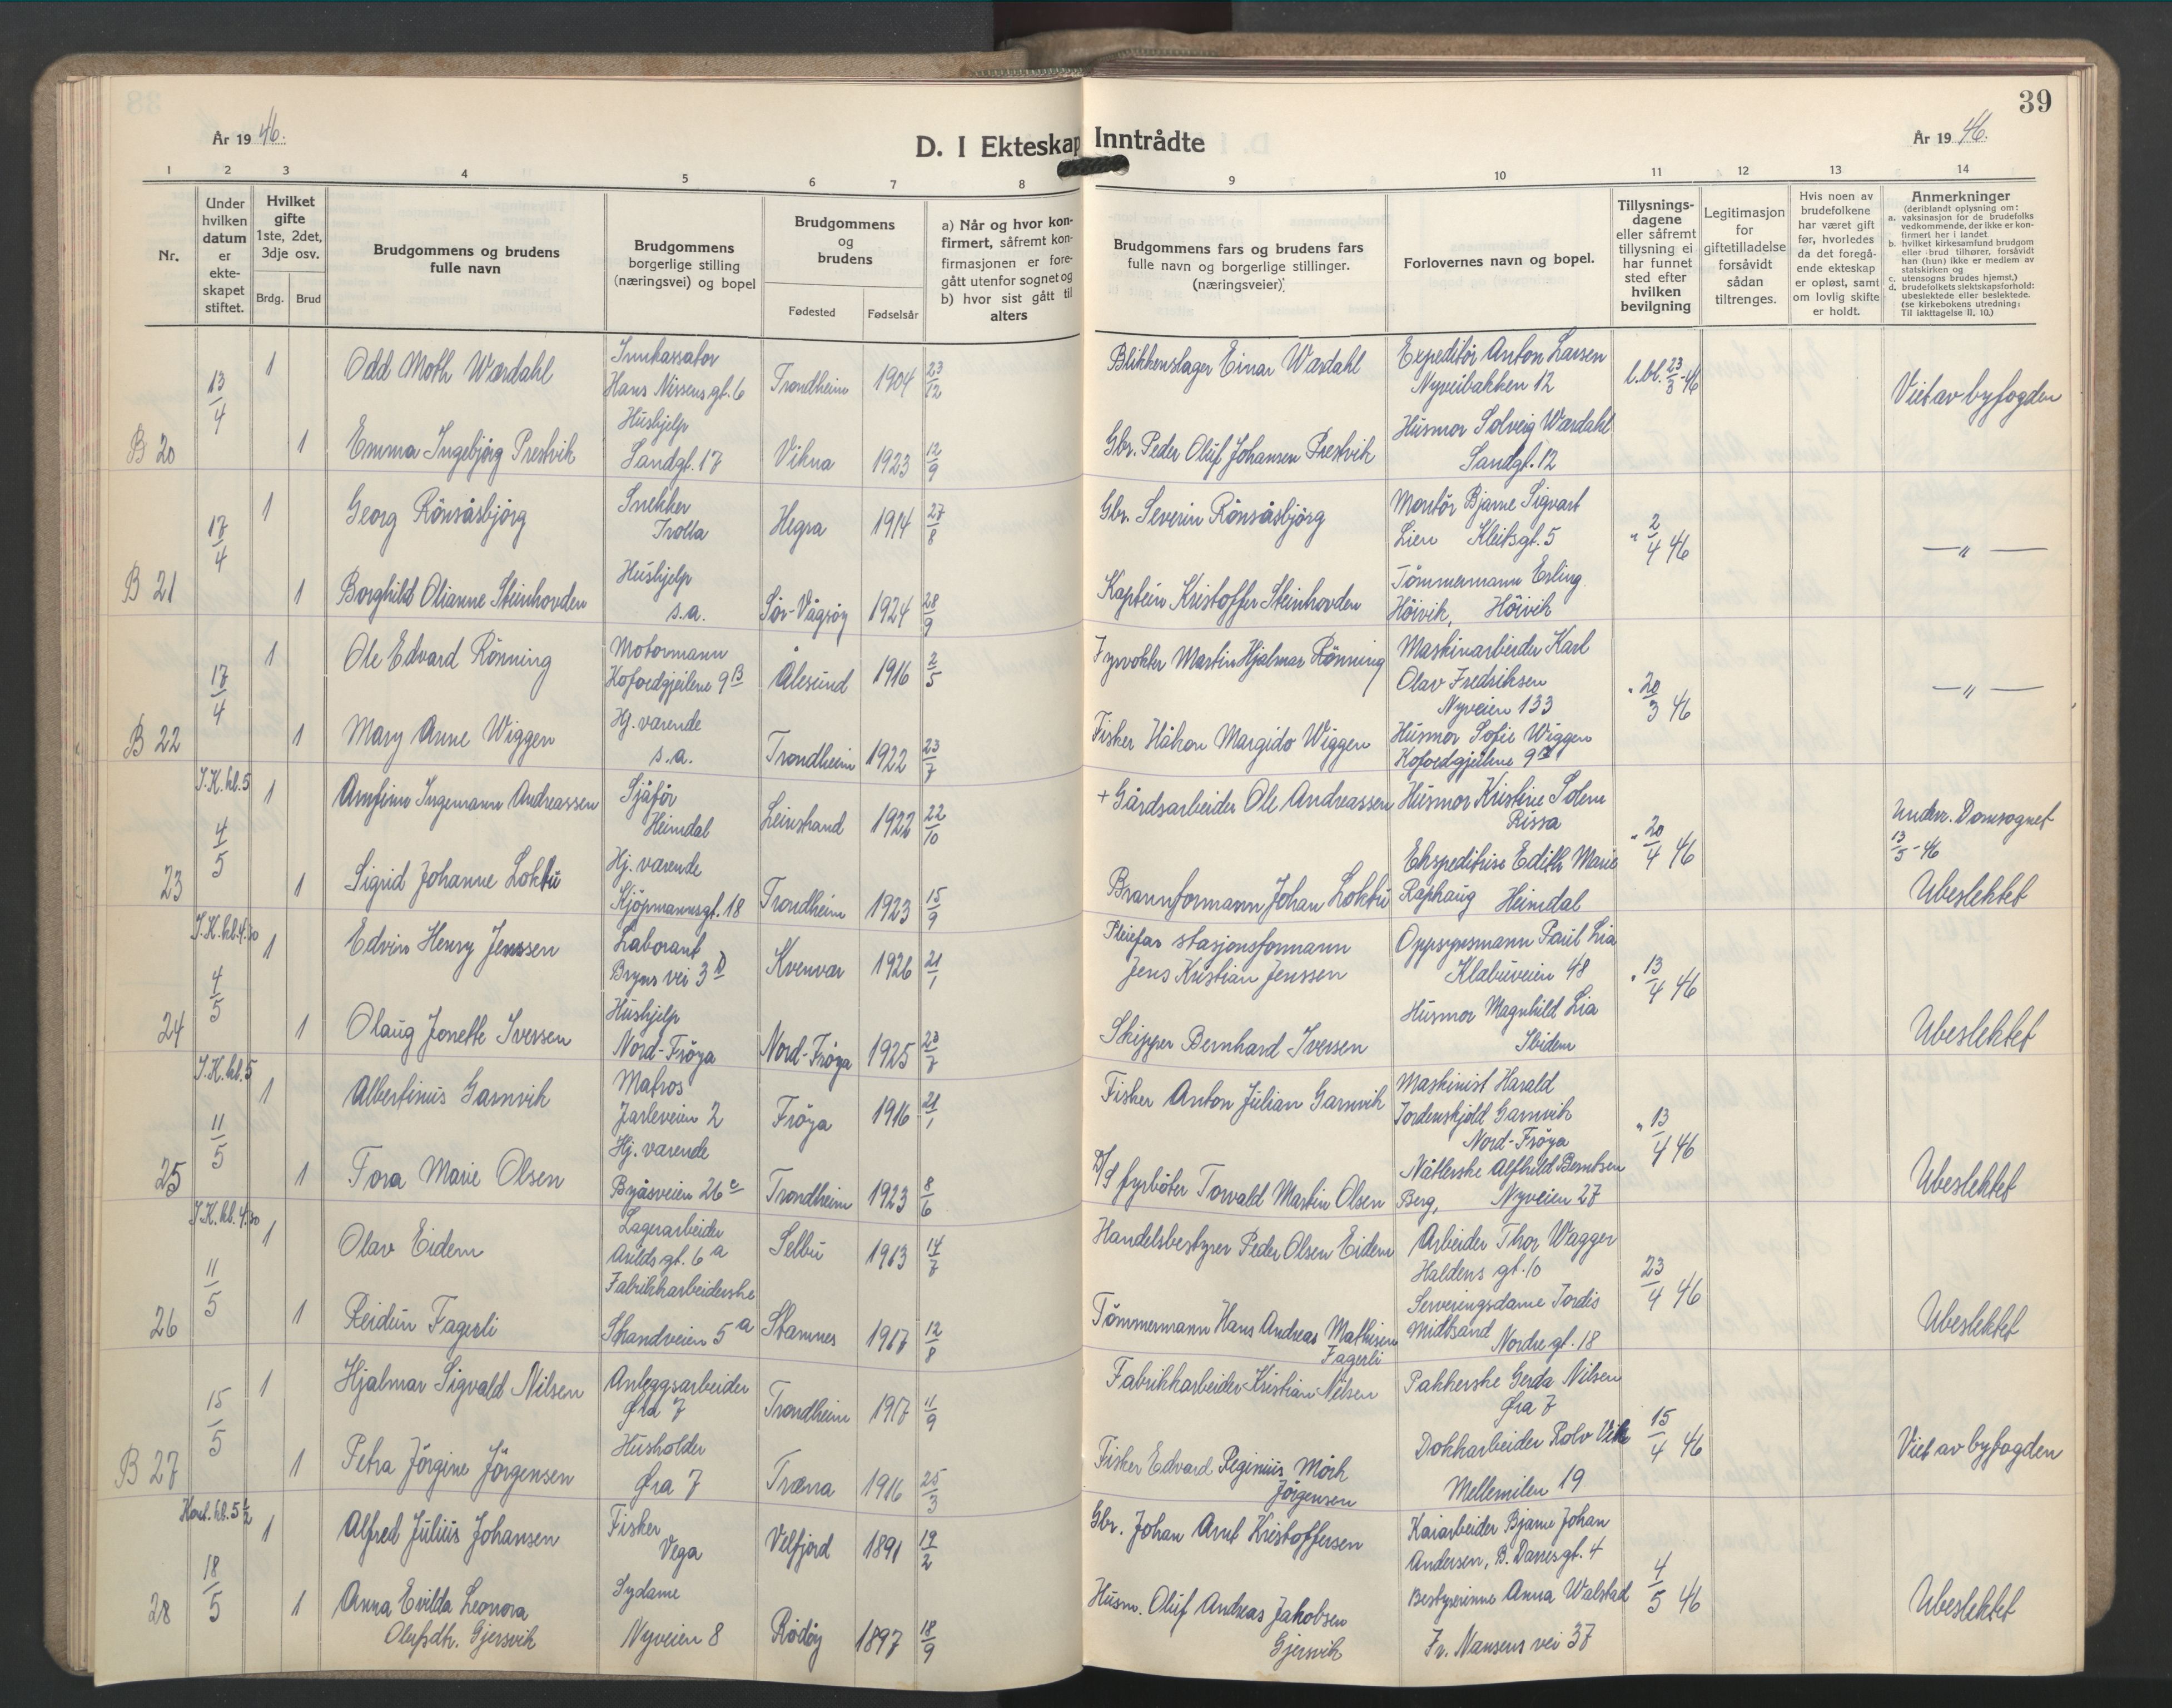 39
År 1946.
D. I Ekteskap Inntrådte
År 1946.
1 2 3 4 5 6 7 8 9 10 11 12 13 14
Nr.
Under hvilken datum er ekte-skapet stiftet.
Hvilket gifte 1ste, 2det, 3dje osv.
Brdg. Brud
Brudgommens og brudens fulle navn
Brudgommens borgerlige stilling (næringsvei) og bopel
Brudgommens og brudens
Fødested Fødselsår
a) Når og hvor kon-firmert, såfremt kon-firmasjonen er fore-gått utenfor sognet og b) hvor sist gått til alters
Brudgommens fars og brudens fars fulle navn og borgerlige stillinger. (næringsveier).
Forlovernes navn og bopel.
Tillysnings-dagene eller såfremt tillysning ei har funnet sted efter hvilken bevilgning
Legitimasjon for giftetilladelse forsåvidt sådan tiltrenges.
Hvis noen av brudefolkene har været gift før, hvorledes da det foregå-ende ekteskap er opløst, samt om lovlig skifte er holdt.
Anmerkninger
(deriblandt oplysning om:
a. vaksinasjon for de brudefolks vedkommende, der ikke er kon-firmert her i landet
b. hvilket kirkesamfund brudgom eller brud tilhører, forsåvidt han (hun) ikke er medlem av statskirken og
c. utensogns brudes hjemst.)
d. brudefolkets slektskapsforhold: ubeslektede eller beslektede. (se kirkebokens utredning: Til iakttagelse II, 10.)
B 20 13/4
1 Odd Moth Wærdahl Innkassator Hans Nissens gt. 6 Trondheim 1904 23/12 Blikkenslager Einar Wærdahl Expeditör Anton Larsen Nyveibakken 12 l.bl. 23/3-46 Viet av byfogden
1 Emma Ingebjörg Prestvik Hushjelp Sandgt. 17 Vikna 1923 12/9 Gbr. Peder Oluf Johansen Prestvik Husmor Solveig Wærdahl Sandgt. 12
B 21 17/4
1 Georg Rönsåsbjörg Snekker Trolla Hegra 1914 27/8 Gbr. Severin Rönsåsbjörg Montör Bjarne Sigvart Lien Kleitsgt. 5 " 2/4 46 — " —
1 Borghild Olianne Steinhovden Hushjelp s.a. Sör-Vågsöy 1924 28/9 Kaptein Kristoffer Steinhovden Tömmermann Erling Höivik, Höivik
B 22 17/4
1 Ole Edvard Rönning Motormann Kofoedgjeilene 9 B Ålesund 1916 2/5 Fyrvokter Martin Hjalmar Rönning Maskinarbeider Karl Olav Fredriksen Nyveien 133 " 20/3 46 — " —
1 Mary Anne Wiggen Hj. værende s.a. Trondheim 1922 23/7 Fisker Håkon Margido Wiggen Husmor Sofie Wiggen Kofoedgjeilene 9 B
23 I.K. kl. 5 4/5
1 Arnfinn Ingemann Andreassen Sjåför Heimdal Leinstrand 1922 22/10 + Gårdsarbeider Ole Andreassen Husmor Kristine Solem Rissa " 20/4 46 Underr. Domsognet 13/5-46
1 Sigrid Johanne Loktu Hj. værende Kjöpmannsgt. 18 Trondheim 1923 15/9 Brannformann Johan Loktu Ekspeditrise Edith Marie Raphaug Heimdal Ubeslektet
24 I.K. kl. 4.30 4/5
1 Edvin Henry Jenssen Laborant Bryns vei 3 D Kvenvær 1926 21/1 Pleiefar stasjonsformann Jens Kristian Jenssen Oppsynsmann Paul Lia Klæbuveien 48 " 13/4 46
1 Olaug Jonette Iversen Hushjelp Nord-Fröya Nord-Fröya 1925 20/7 Skipper Bernhard Iversen Husmor Magnhild Lia Ibidem Ubeslektet
25 I.K. kl. 5 11/5
1 Albertinus Garnvik Matros Jarleveien 2 Fröya 1916 21/1 Fisker Anton Julian Garnvik Maskinist Harald Tordenskjold Garnvik Nord-Fröya " 13/4 46
1 Tora Marie Olsen Hj. værende Byåsveien 26 c Trondheim 1923 8/6 D/S fyrböter Torvald Martin Olsen Nåtlerske Alfhild Berntsen Berg, Nyveien 27 Ubeslektet
26 I.K. kl. 4.30 11/5
1 Olav Eidem Lagerarbeider Arilds gt. 6 a Selbu 1913 14/7 Handelsbestyrer Peder Olsen Eidem Arbeider Thor Wagger Haldens gt. 10 23/4 46
1 Reidun Fagerli Fabrikkarbeiderske Strandveien 5 a Stamnes 1917 12/8 Tömmermann Hans Andreas Mathisen Fagerli Serveringsdame Jordis Midtsand Nordre gt. 18 Ubeslektet
B 27 15/5
1 Hjalmar Sigvald Nilsen Anleggsarbeider Øra 7 Trondheim 1917 11/9 Fabrikkarbeider Kristian Nilsen Pakkerske Gerda Nilsen Øra 7 15/4 46 Viet av byfogden
1 Petra Jörgine Jörgensen Husholder Øra 7 Træna 1916 25/3 Fisker Edvard Reginius Mörk Jörgensen Dokkarbeider Rolv Vik Mellemilen 19
28 Kort. kl. 5 1/2 18/5
1 Alfred Julius Johansen Fisker Vega Velfjord 1891 19/2 Gbr. Johan Arnt Kristoffersen Kaiarbeider Bjarne Johan Andersen, B. Danesgt. 4 4/5 46
1 Anna Evilda Leonora Olufsdtr. Gjersvik Sydame Nyveien 8 Rödöy 1897 18/9 Husm. Oluf Andreas Jakobsen Gjersvik Bestyrerinne Anna Walstad Fr. Nansens vei 37 Ubeslektet